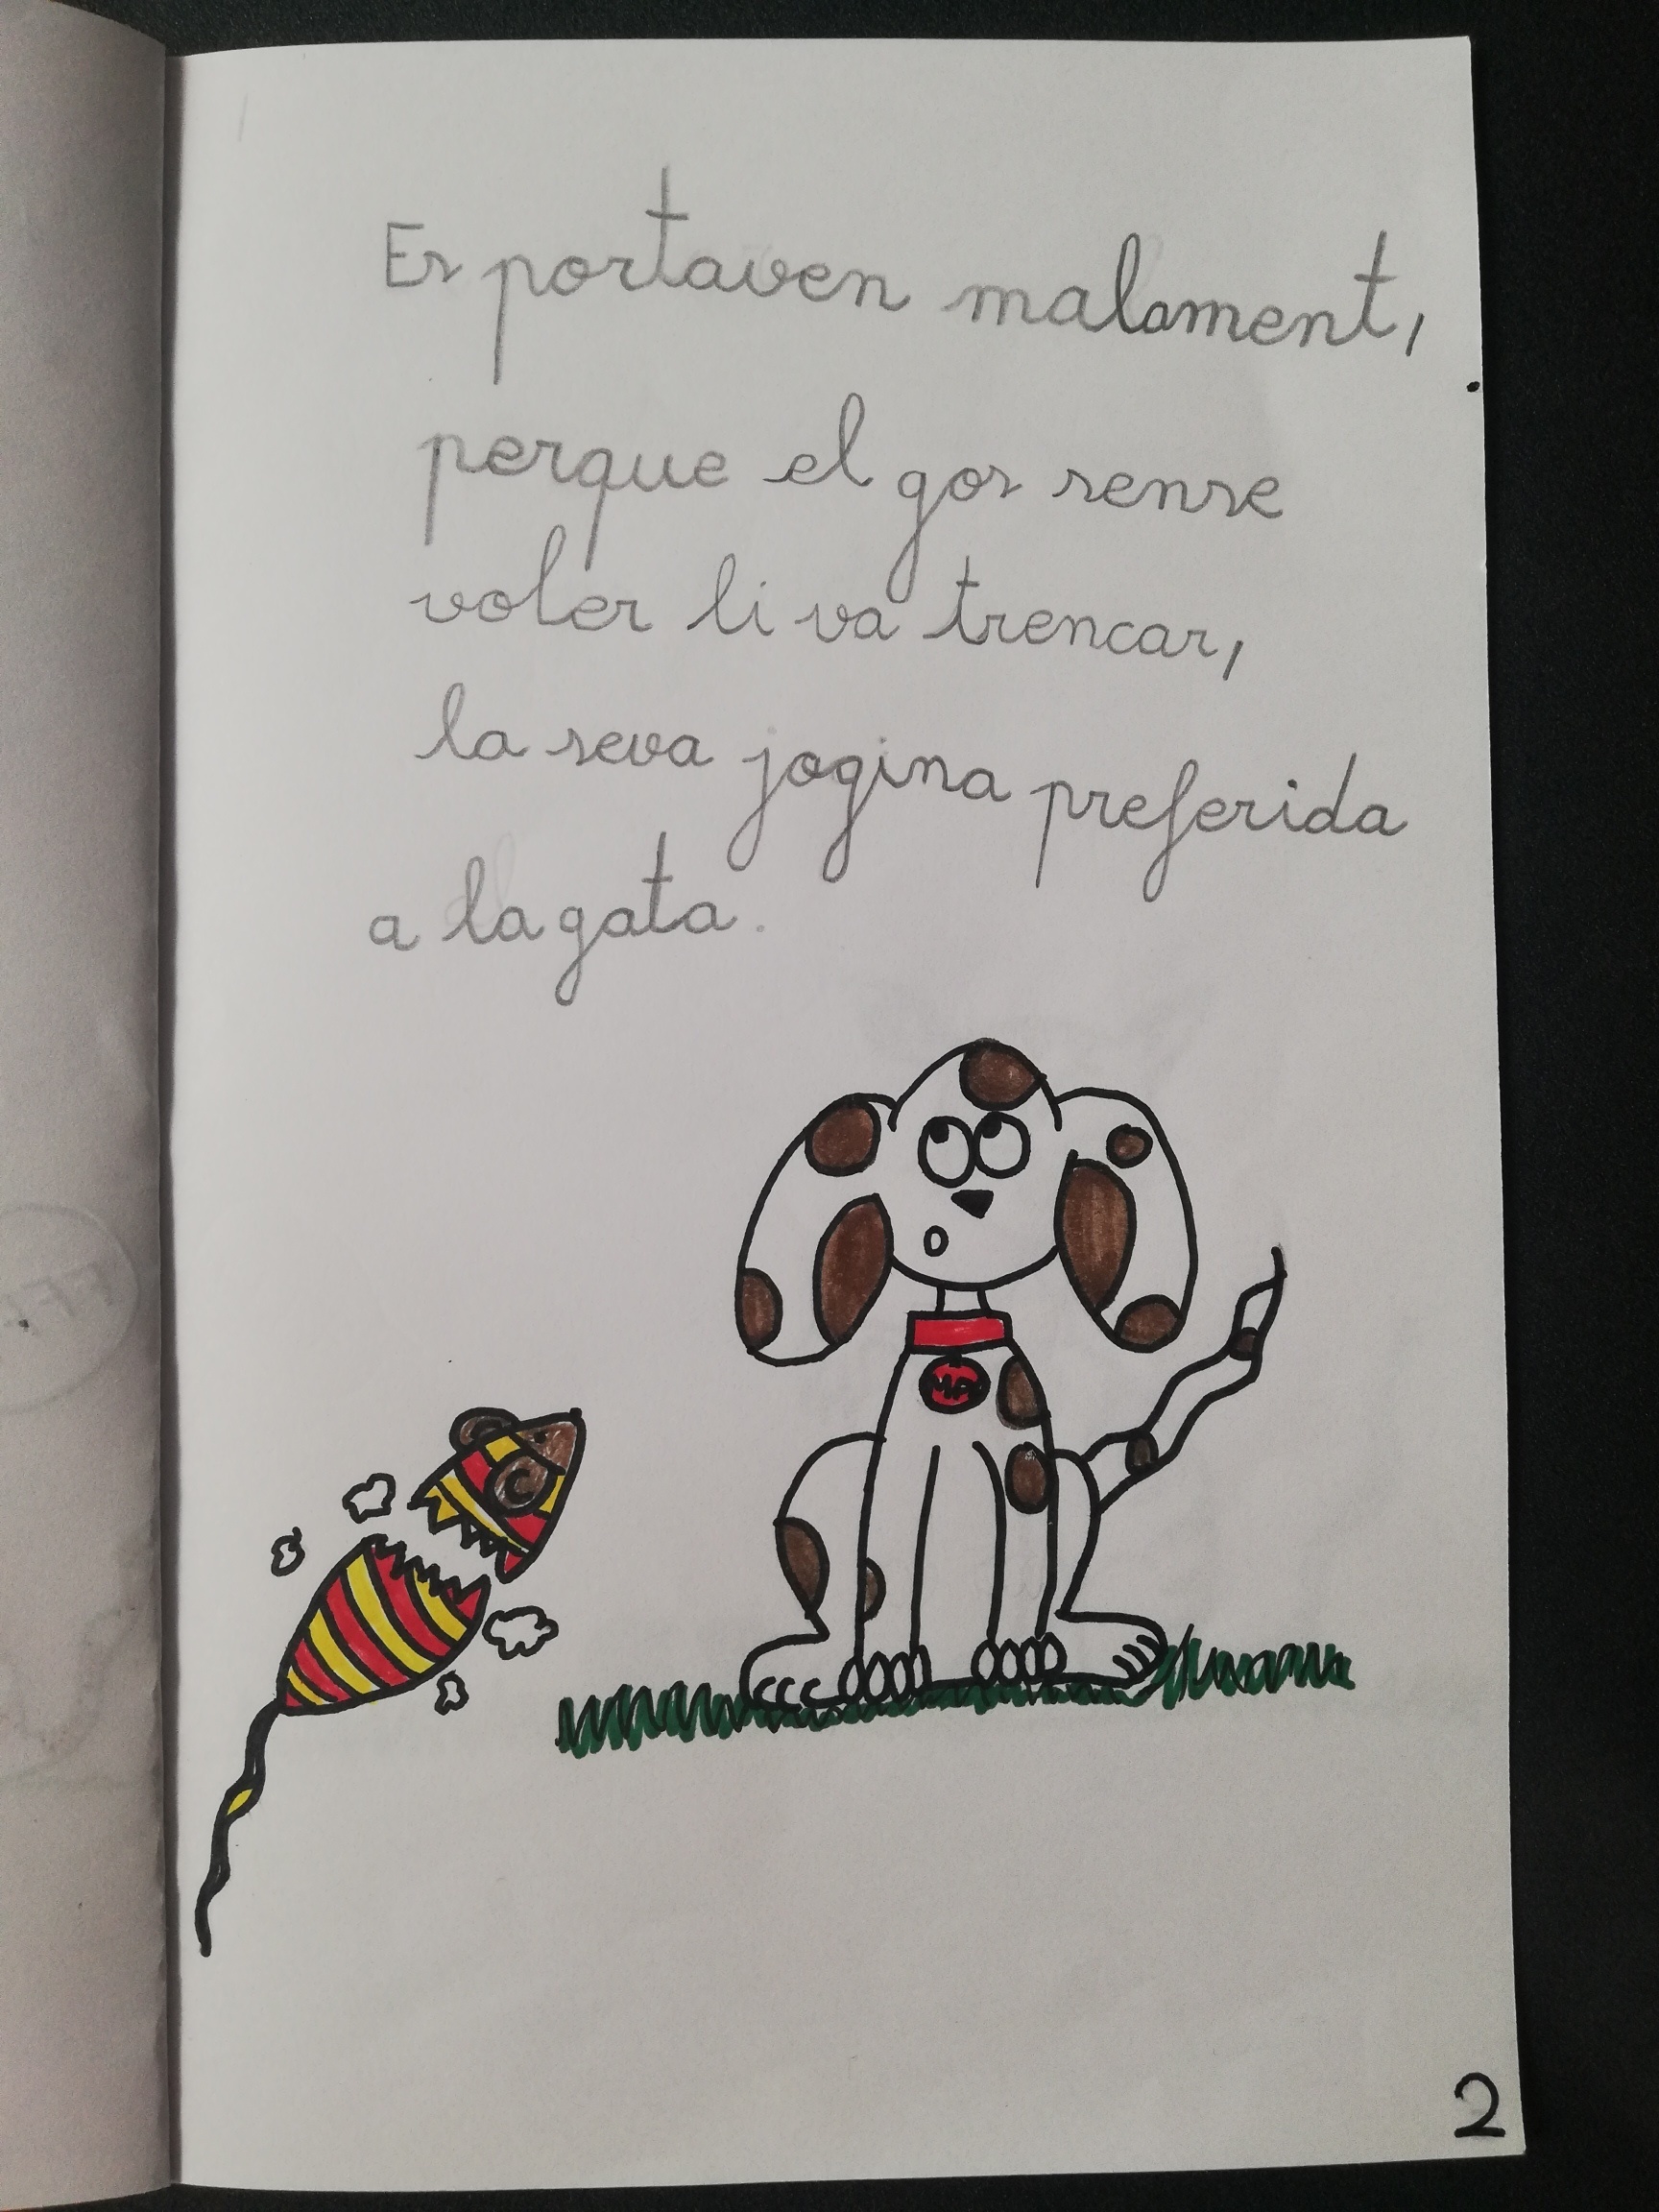 Es portaven malament,
perque el gos sense
voler li va trencar,
la seva jogina preferida
a la gata.
2